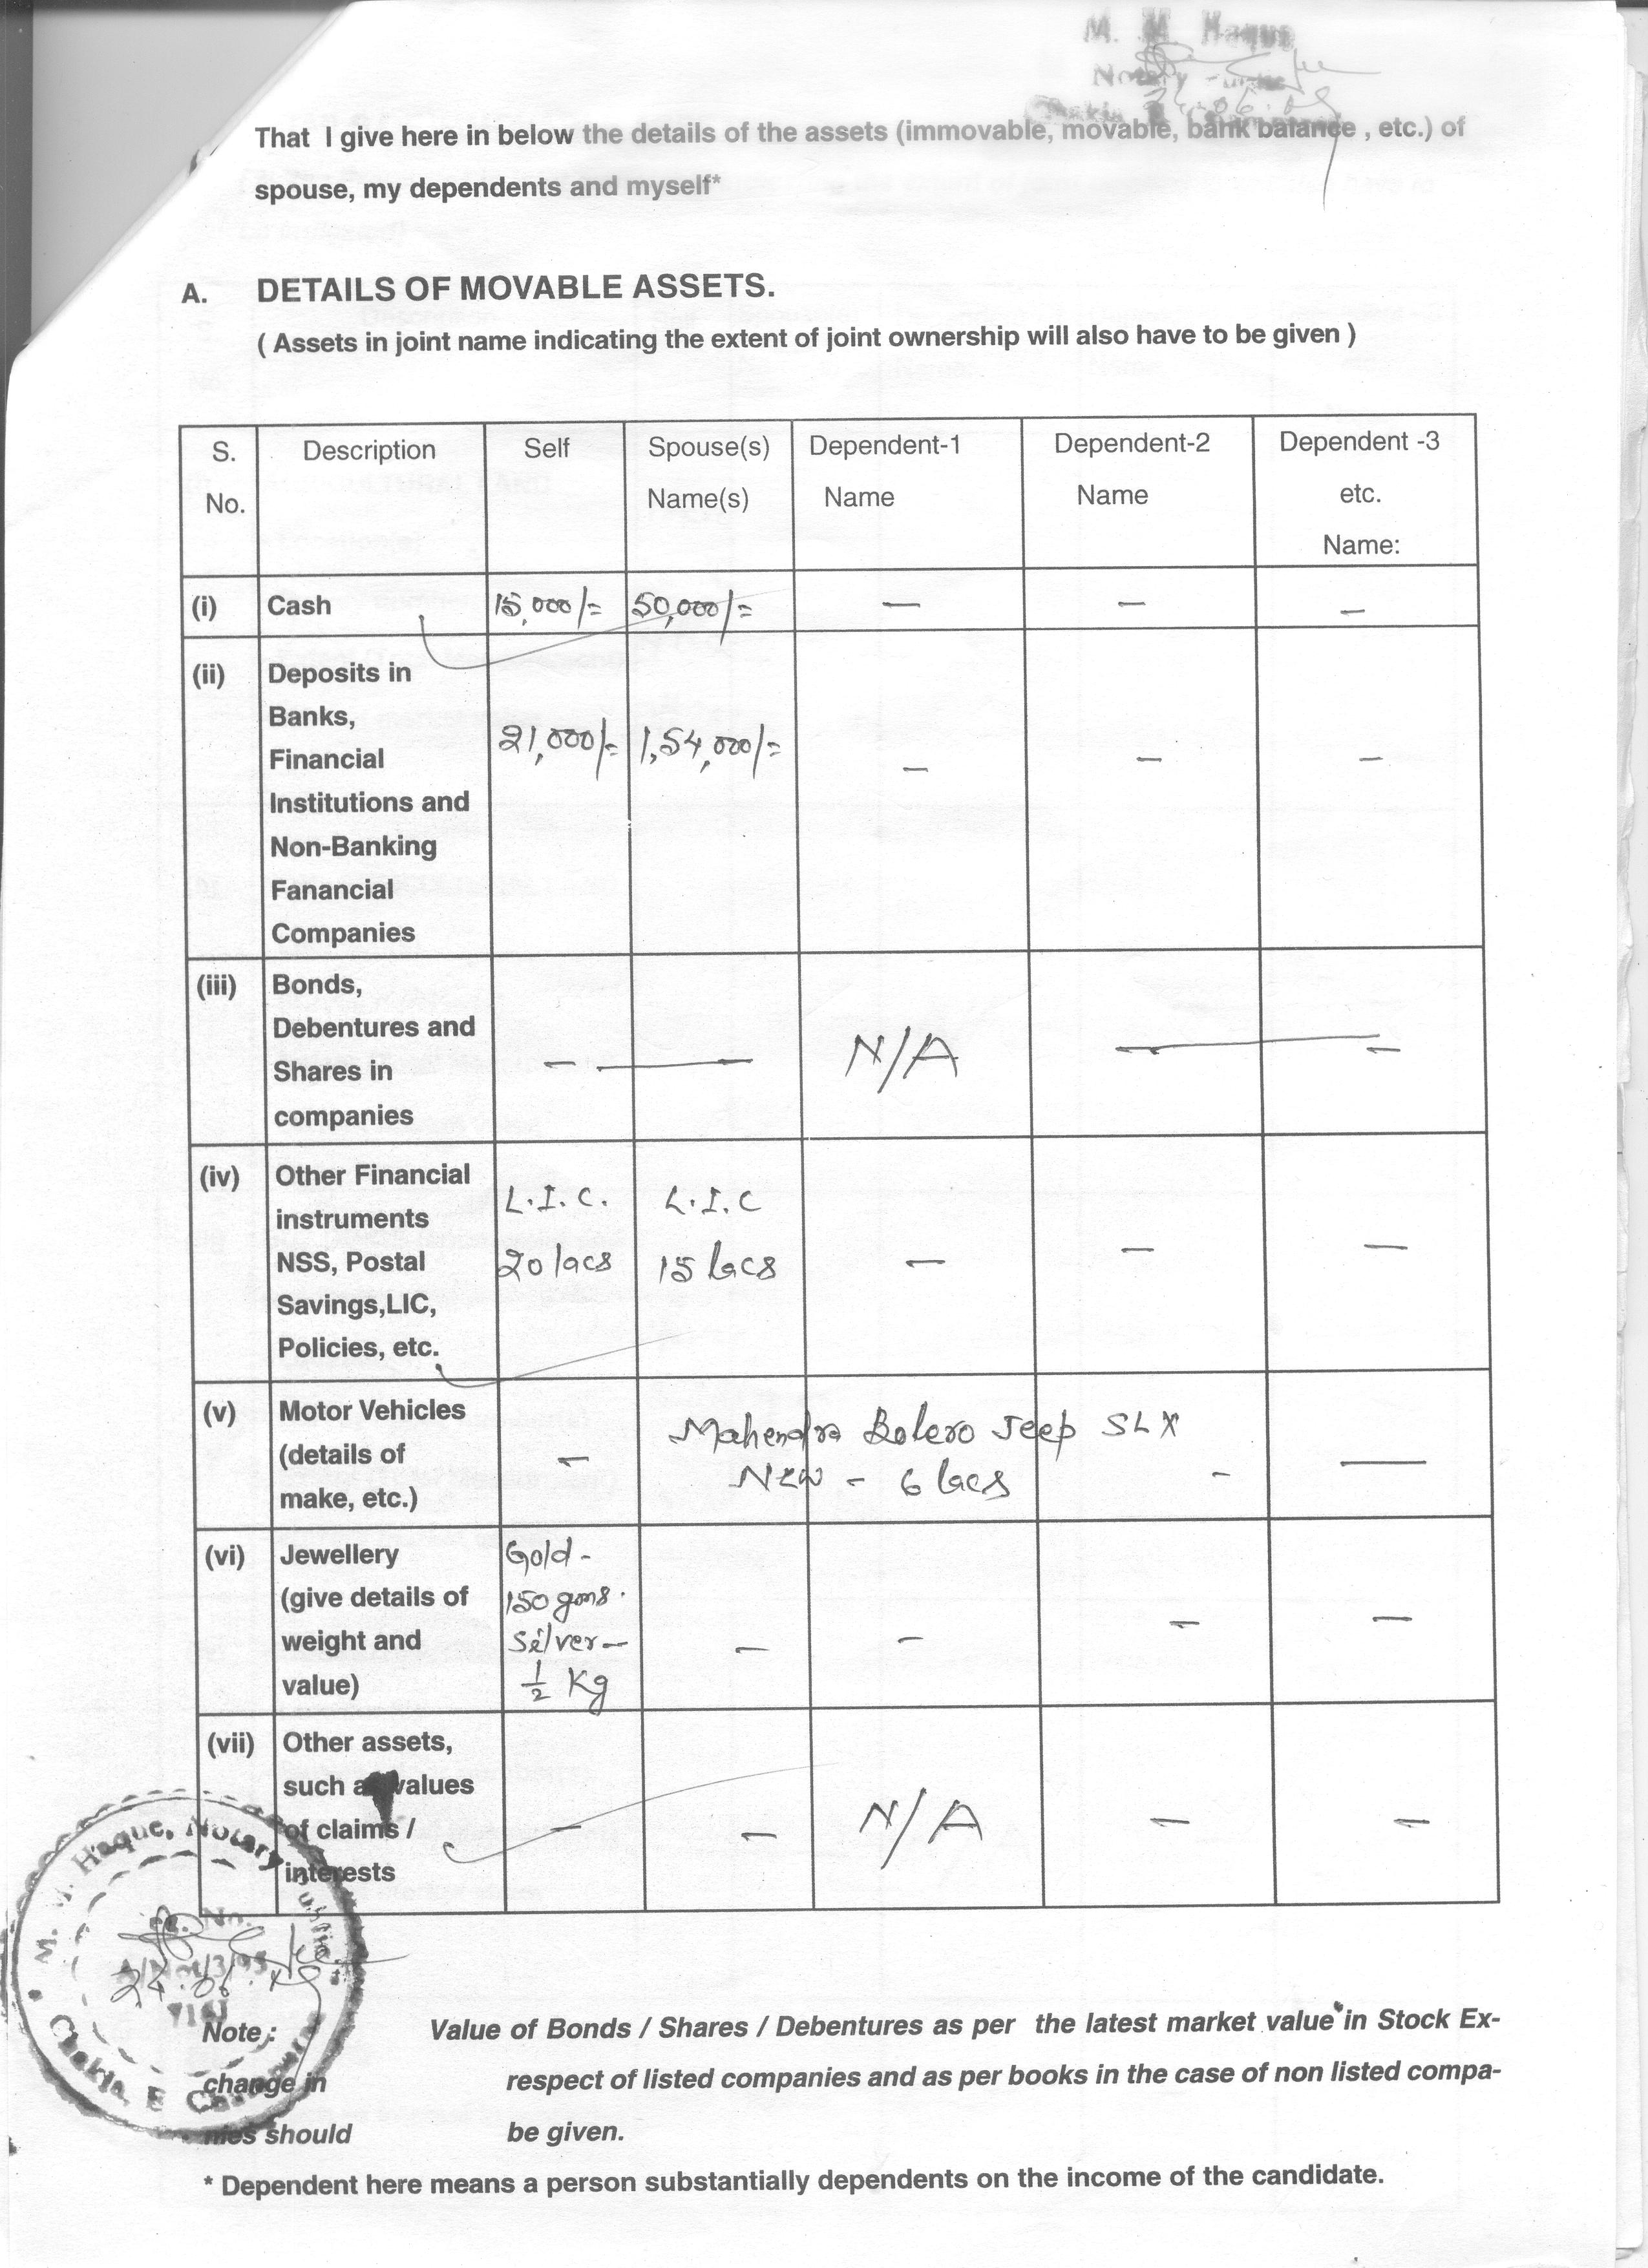 M. M. Haque
Notary
24.06.09
That I give here in below the details of the assets (immovable, movable, bank balance , etc.) of
spouse, my dependents and myself*
A. DETAILS OF MOVABLE ASSETS.
( Assets in joint name indicating the extent of joint ownership will also have to be given )
S. No. Description Self Spouse(s) Name(s) Dependent-1 Name Dependent-2 Name Dependent -3 etc. Name:
(i) Cash 15,000/= 50,000/= — — —
(ii) Deposits in
Banks,
Financial 21,000/= 1,54,000/= — — —
Institutions and
Non-Banking
Fanancial
Companies
(iii) Bonds,
Debentures and
Shares in — — N/A — —
companies
(iv) Other Financial
instruments L.I.C. L.I.C
NSS, Postal 20 lacs 15 lacs — — —
Savings,LIC,
Policies, etc.
(v) Motor Vehicles Mahendra Bolero Jeep SLX
(details of — New - 6 lacs - —
make, etc.)
(vi) Jewellery Gold -
(give details of 150 gms.
weight and Silver — — — — —
value) ½ Kg
(vii) Other assets,
such as values
of claims / — — N/A — —
interests
M. M. Haque, Notary Public
24.06.09
Chakia, E
Note : Value of Bonds / Shares / Debentures as per the latest market value in Stock Ex-
change in respect of listed companies and as per books in the case of non listed compa-
nies should be given.
* Dependent here means a person substantially dependents on the income of the candidate.